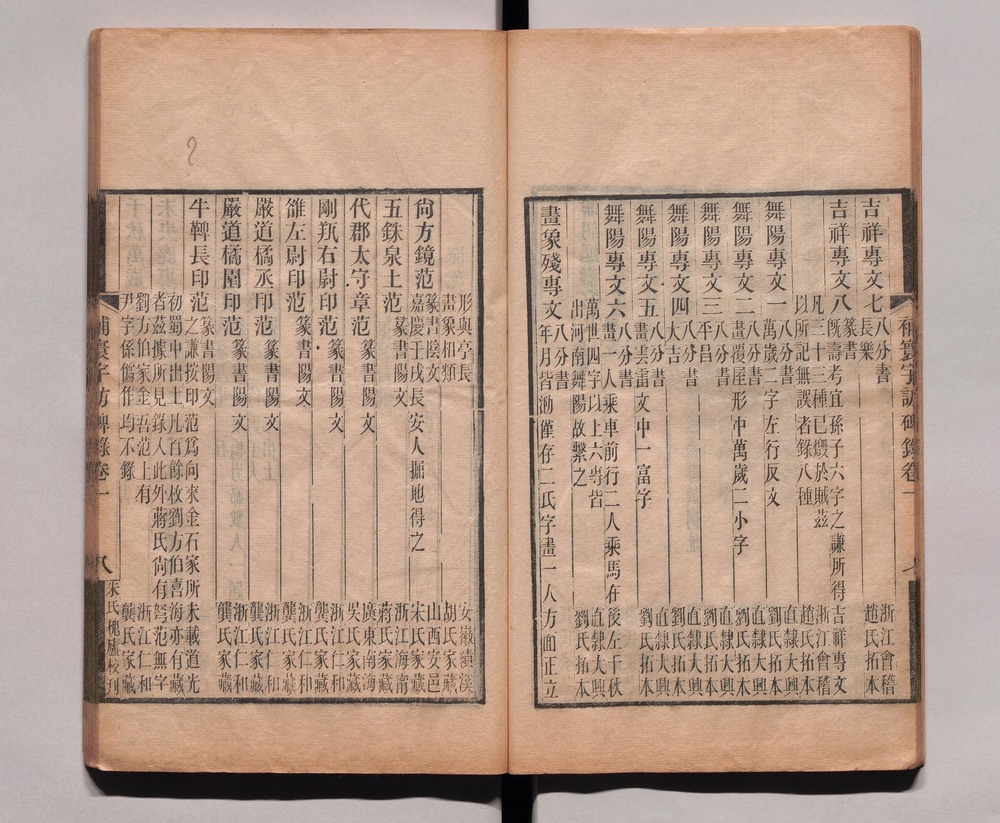 補寰宇訪碑錄卷一
吉祥專文七 八分書
長樂
浙江會稽
趙氏拓本
吉祥專文八 篆書
既壽考宜孫子六字之謙所得吉祥專文
凡三十三種已燬於賊茲
以所記無誤者錄八種
浙江會稽
趙氏拓本
舞陽專文一 八分書
萬歲二字左行反文
直隸大興
劉氏拓本
舞陽專文二 八分書
畫覆屋形中萬歲二小字
直隸大興
劉氏拓本
舞陽專文三 八分書
平昌
直隸大興
劉氏拓本
舞陽專文四 八分書
大吉
直隸大興
劉氏拓本
舞陽專文五 八分書
畫雲雷文中一富字
直隸大興
劉氏拓本
舞陽專文六 八分書
畫一人乘車前行二人乘馬在後左千秋
萬世四字以上六專皆
出河南舞陽故繫之
直隸大興
劉氏拓本
畫象殘專文 八分書
年月皆泐僅存二氏字畫一人方面正立
形與亭長
畫象相類
安徽績溪
胡氏家藏
尙方鏡范 篆書陰文
嘉慶壬戌長安人掘地得之
山西安邑
宋氏家藏
五銖泉土范 篆書陽文
浙江海甯
蔣氏家藏
代郡太守章范 篆書陽文
廣東南海
吳氏家藏
剛羝右尉印范 篆書陽文
浙江仁和
龔氏家藏
雒左尉印范 篆書陽文
浙江仁和
龔氏家藏
嚴道橘丞印范 篆書陽文
浙江仁和
龔氏家藏
嚴道橘園印范 篆書陽文
浙江仁和
龔氏家藏
牛鞞長印范 篆書陽文
之謙按印范爲向來金石家所未載道光
初蜀中出土凡百餘枚劉方伯喜海亦有藏
者茲據所見錄入此外蔣氏尙有弩范無字
劉方伯家金吾范上有
尹字係僞作均不錄
浙江仁和
龔氏家藏
補寰宇訪碑錄卷一 八 朱氏槐廬校刊